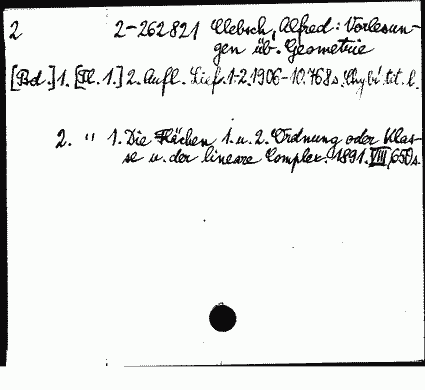 2 2-262821 Clebsch, Alfred: Vorlesun-
gen üb. Geometrie
[Bd.] 1. [Tl. 1.] 2. Aufl. Lief. 1-2. 1906-10. 768 s. Chybí tit. l.
2. " 1. Die Flächen 1. u. 2. Ordnung oder Klas-
se u. der lineare Complex. 1891. VIII, 650 s.